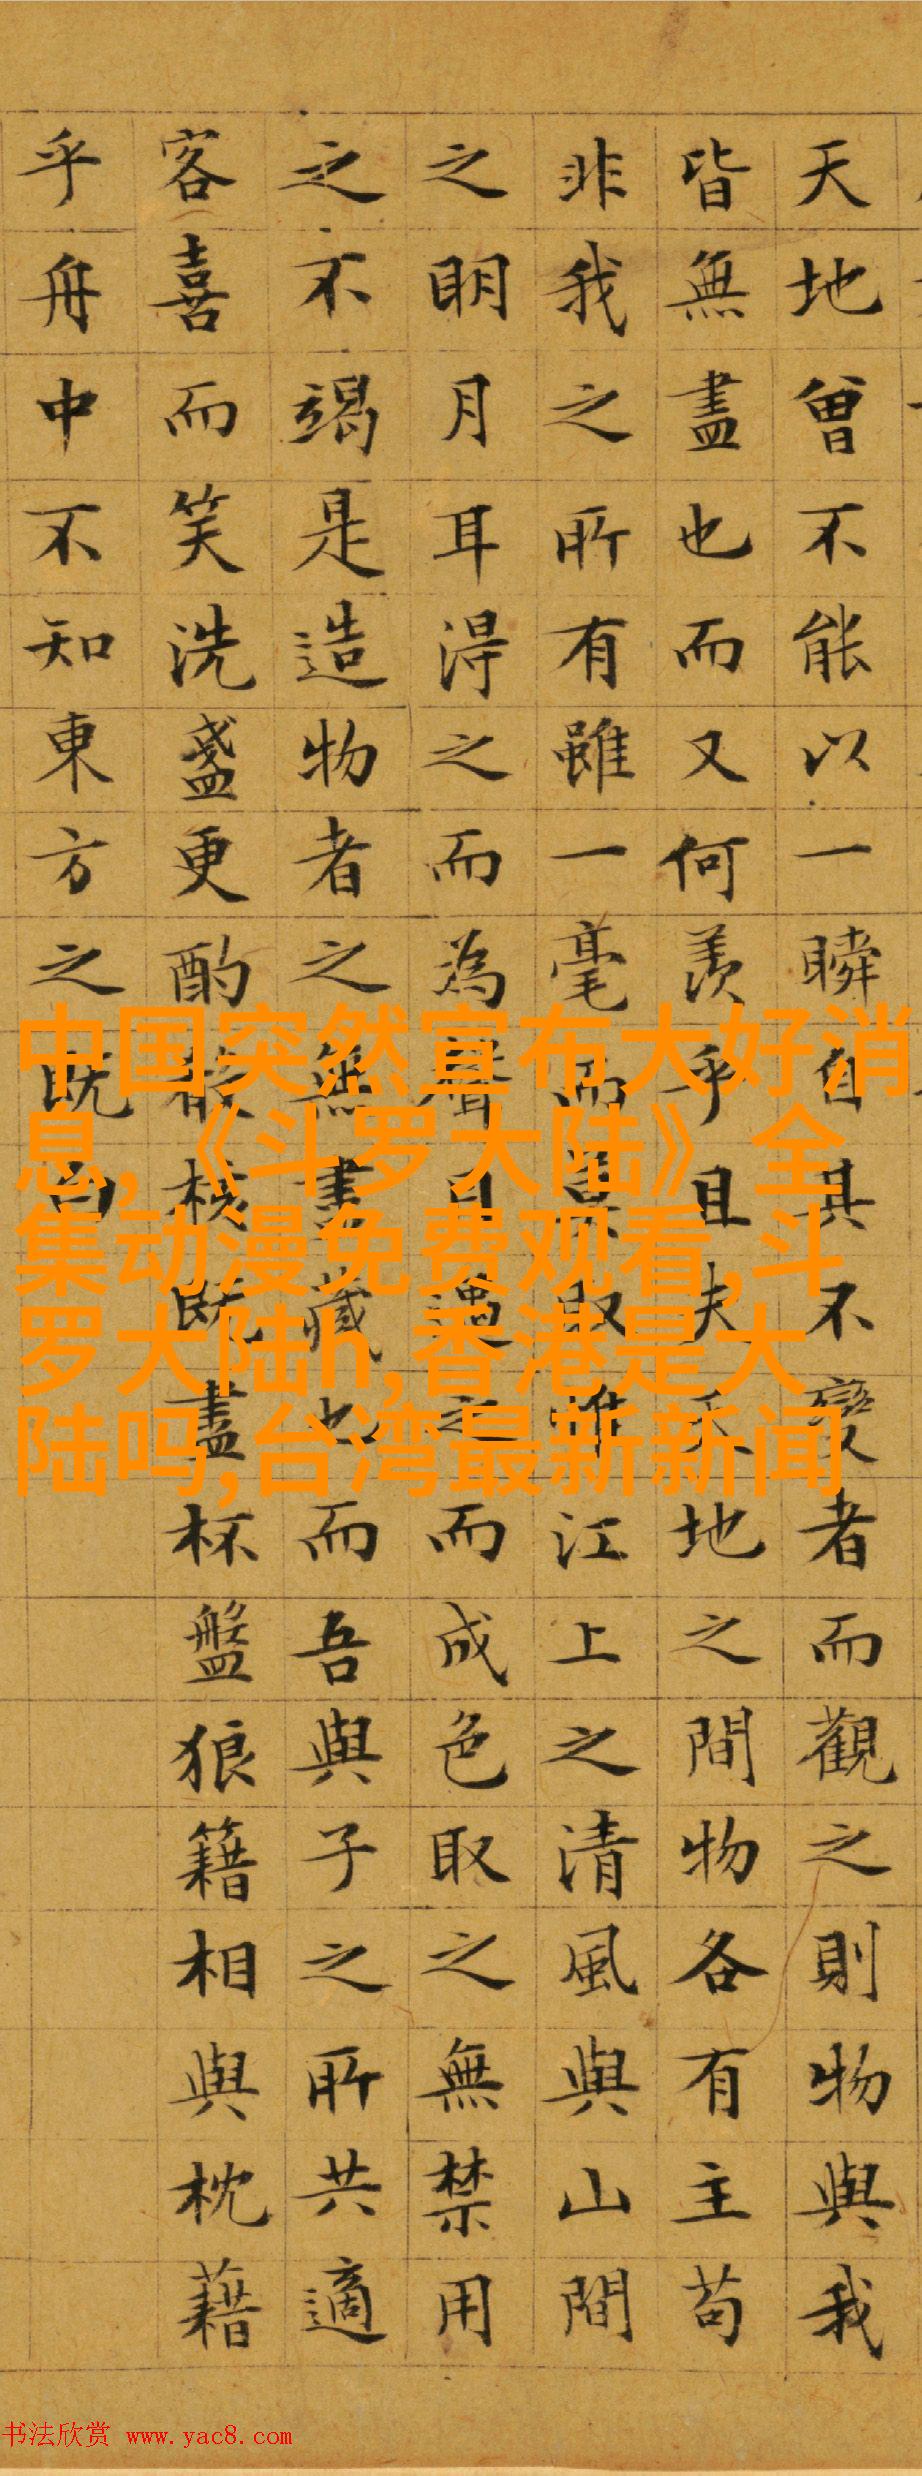 天地曾不能以一瞬自其不變者而觀之則物與我
皆無盡也而又何羨乎且夫天地之間物各有主苟
非我之所有雖一毫而莫取惟江上之清風與山間
之明月耳得之而為聲目遇之而成色取之無禁用
之不竭是造物者之無盡藏也而吾與子之所共適
客喜而笑洗盞更酌餚核既盡杯盤狼籍相與枕藉
乎舟中不知東方之既白
中国突然宣布大好消
息,《斗罗大陆》全
集动漫免费观看,斗
罗大陆h,香港是大
陆吗,台湾最新新闻
书法欣赏 www.yac8.com